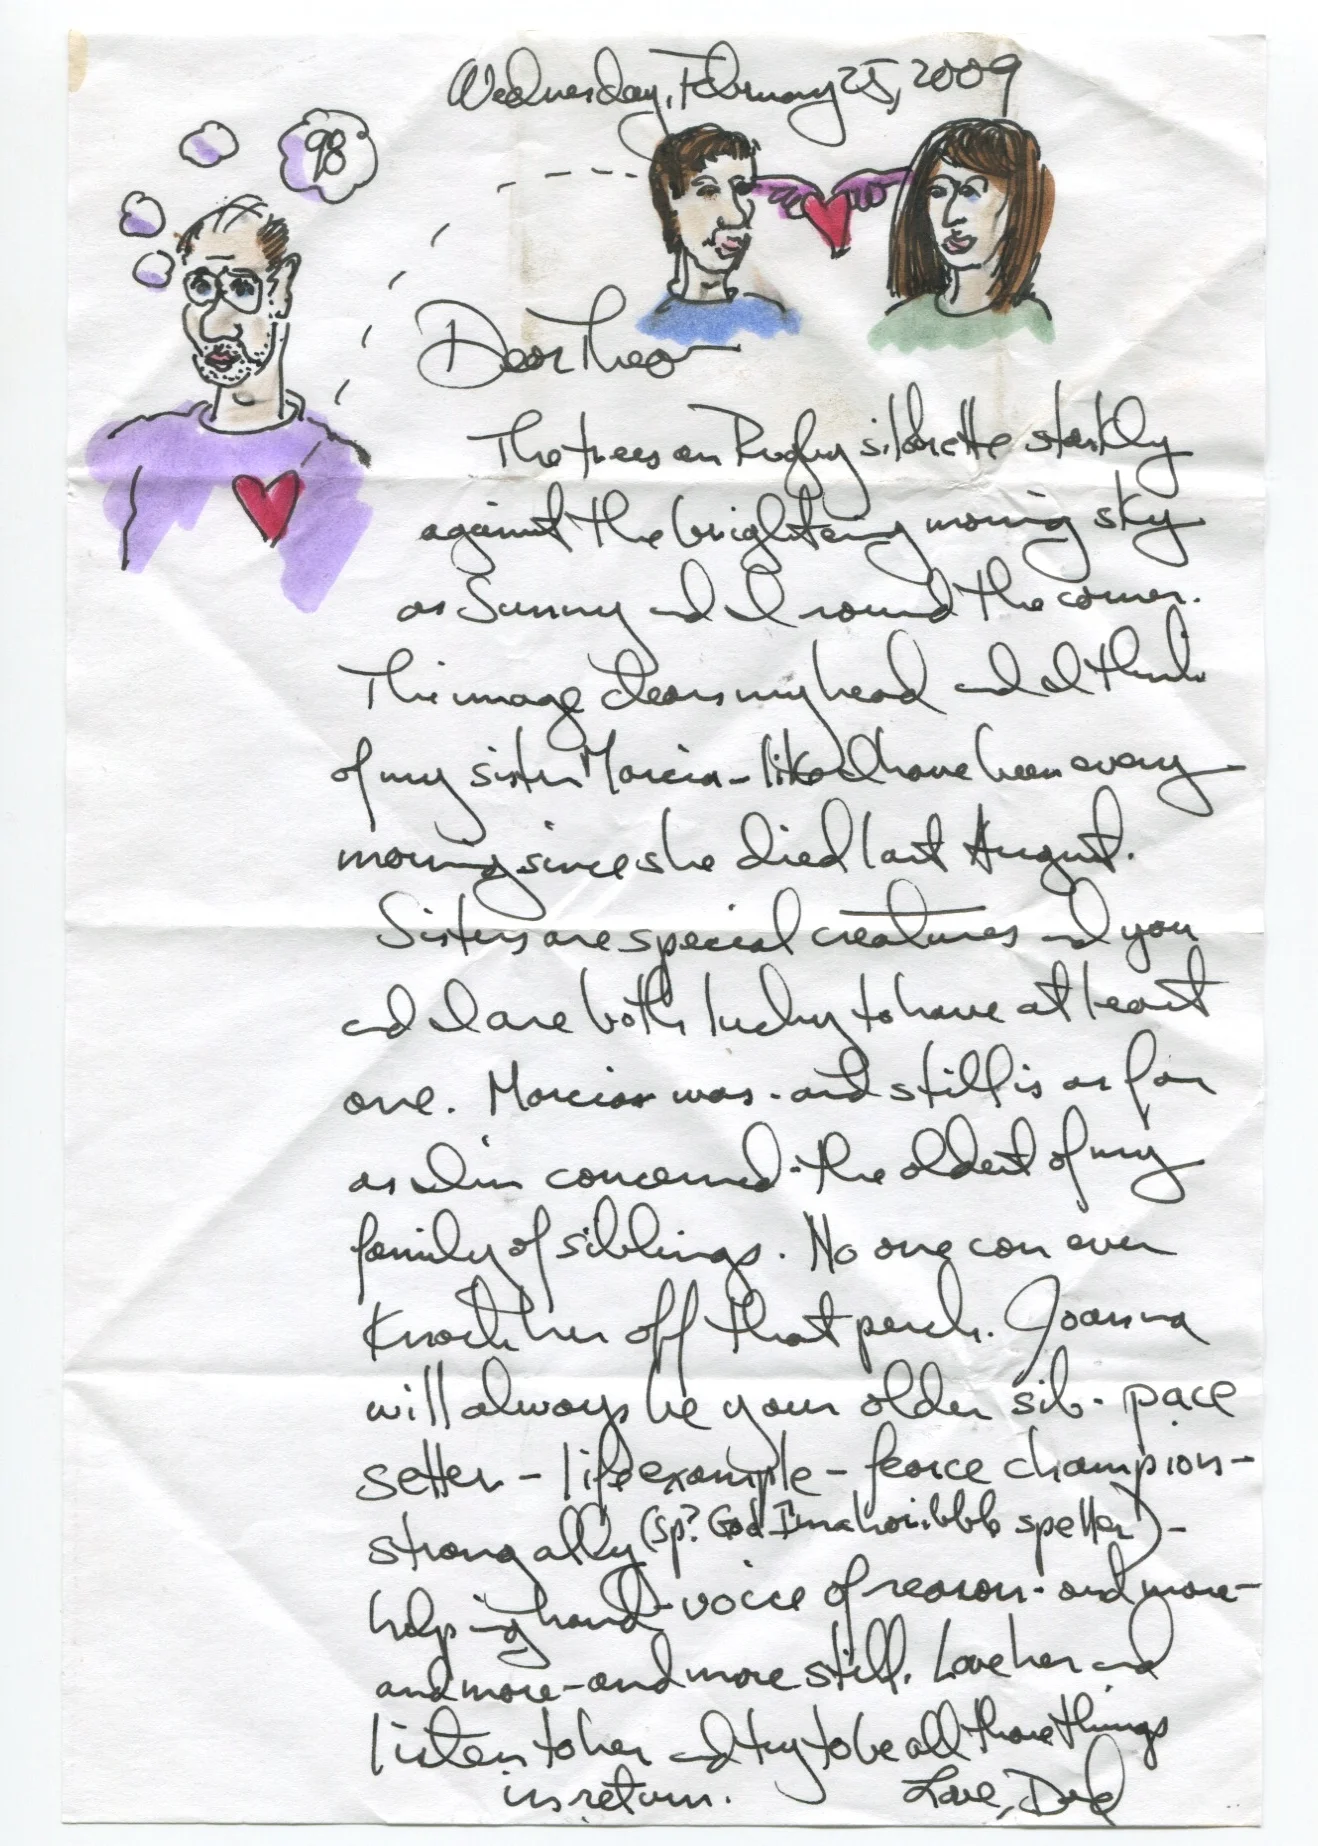 Wednesday, February 25, 2009
98
Dear Theo—
The trees on Rugby silhouette starkly
against the brightening morning sky
as Sunny and I round the corner.
This image clears my head and I think
of my sister Marcia - like I have been every
morning since she died last August.
Sisters are special creatures and you
and I are both lucky to have at least
one. Marcia was - and still is as far
as I'm concerned - the oldest of my
family of siblings. No one can ever
knock her off that perch. Joanna
will always be your older sib - pace
setter - life example - fearce champion -
strong ally (sp? God I'm a horibbb speller) -
helping hand - voice of reason - and more -
and more - and more still. Love her and
listen to her and try to be all those things
in return. Love, Dad